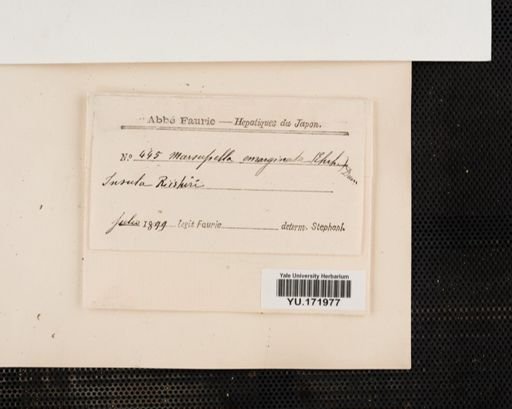 Abbé Faurie — Hépatiques du Japon.
No. 445 Marsupella emarginata (Ehrh.) Dum
Insula Rishiri
Julio 1899 legit Faurie determ. Stephani.
Yale University Herbarium
YU.171977